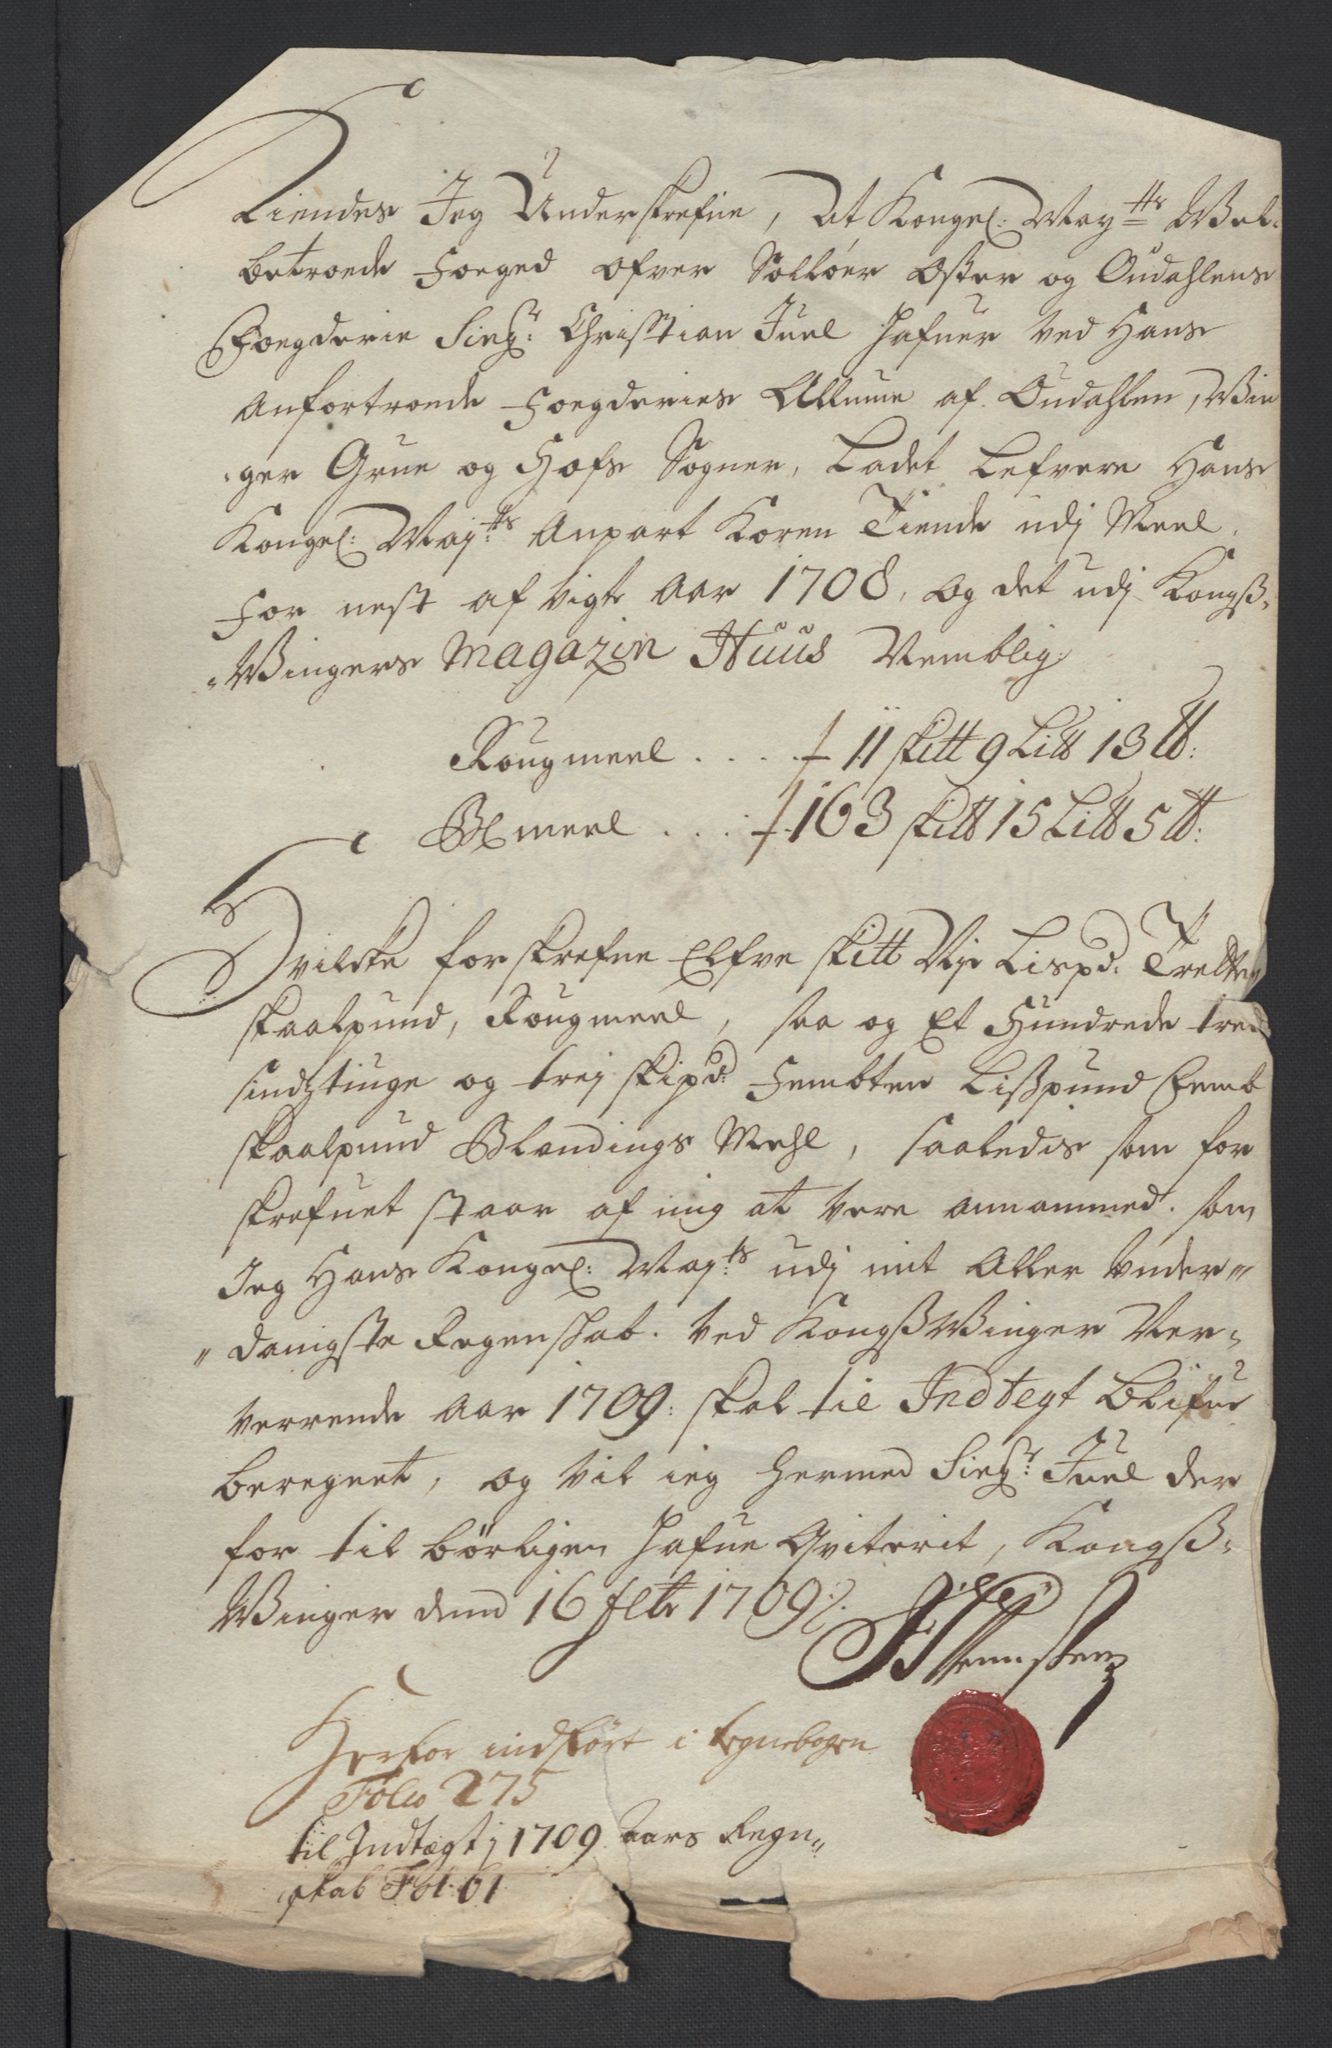 Kiendes Jeg Underskrefne, At Kongel: Maytts Wel-
betroede Foeged ofver Solløer Øster og Oudahlens
Foegderie Sieg.r Christian Juel hafuer ved Hans
Anfortroede Foegderies Allmue af Oudahlen, Win
ger Grue og Hofs Sogner, Ladet Lefvere Hans
Kongel: Majtts Anpart Koren Tiende udj Meel,
For nest afvigte Aar 1708, og det udj Kongß-
Wingers Magazin Huus Nemblig
Rougmeel .... 11 skitt 9 Litt 13 tt:
Bl meel .... 163 skitt 15 Litt 5 tt:
Hvilcke forskrefne Elfve skitt Nje Lispd. Tretten
skaalpund, Rougmeel, saa og Et Hundrede tred
sindztiuge og trej skipd: Fembten Lißpund Femb
skaalpund Blandings Mehl, saaledis som for
skrefuet staar af mig at vere annammed. som
Jeg Hans Kongel: Maj:ts udj mit Aller under-
danigste Regenskab. ved KongßWinger Ner-
verende Aar 1709: skal til Indtegt blifue
beregnet, og vil ieg hermed Sieg.r Juel der
for tilbørligen hafue Qviterit, Kongß-
Winger dend 16 1709
Herfor indført i tegnebogen
Folio 275
til Indtægt j 1709 Aars Regn-
skab Fol 61